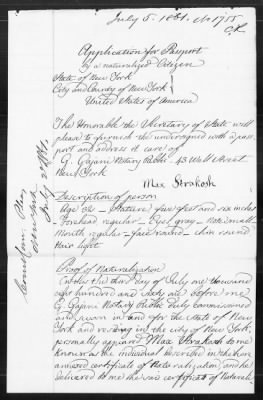 July 5. 1881. No 1755
Application for Passport
by a naturalized Citizen
State of New York
City and County of New York
United States of America
The Honorable the Secretary of State will
please to furnish the undersigned with a pass
port and address it care of
G. Gajani Notary Public. 43 Wall Street
New York
Max Strakosh
Description of person
Age 52 — Stature five feet and six inches
Forehead regular — Eyes gray — Nose small
Mouth regular — face round — chin round
Hair light
Proof of Naturalization
On this the third day of July one thousand
eight hundred and sixty before me
G. Gajani Notary Public duly commissioned
and sworn in and for the State of New
York and residing in the city of New York,
personally appeared Max Strakosh to me
known as the individual described in the here
annexed certificate of Naturalization and he
delivered to me the said certificate of Naturali